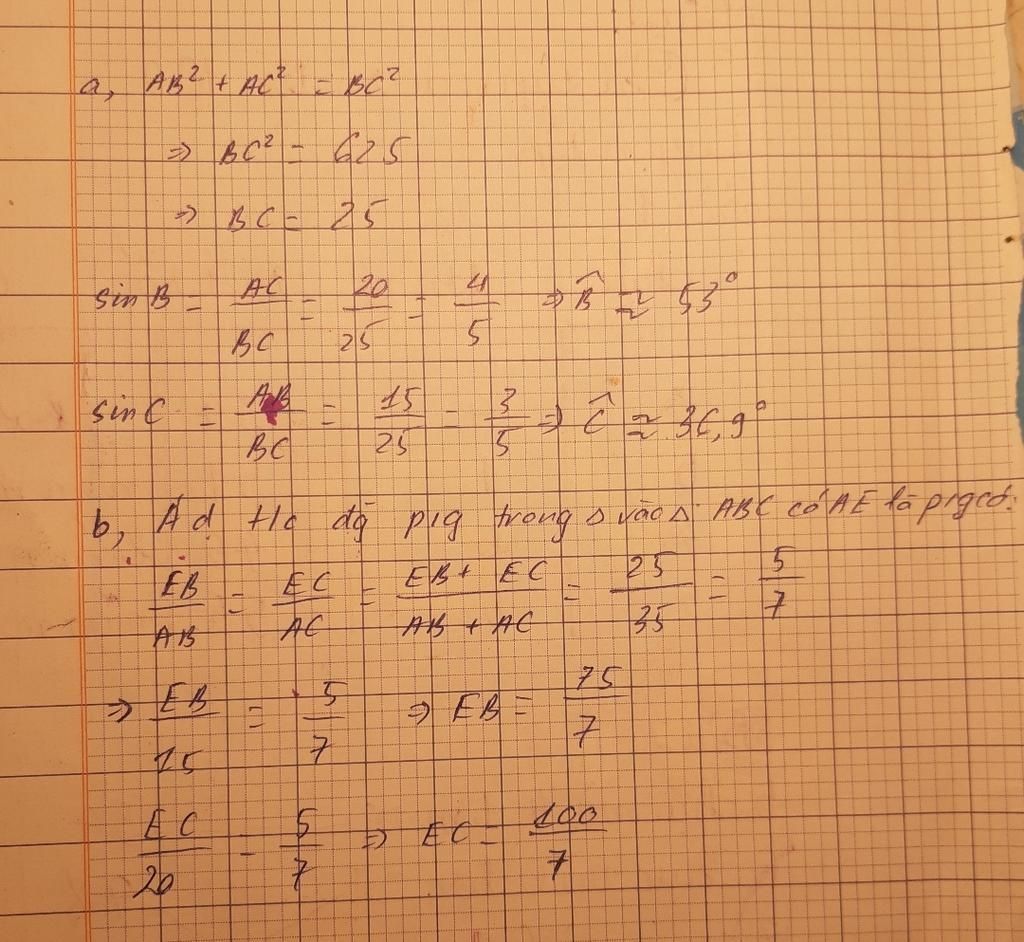 a, AB² + AC² = BC²
⇒ BC² = 625
⇒ BC = 25
sin B = AC/BC = 20/25 = 4/5 ⇒ B̂ ≈ 53°
sin C = AB/BC = 15/25 = 3/5 ⇒ Ĉ ≈ 36,9°
b, Ád t/c đg p/g trong Δ vào Δ ABC có AE là p/g có:
EB/AB = EC/AC = EB + EC/AB + AC = 25/35 = 5/7
⇒ EB/15 = 5/7 ⇒ EB = 75/7
EC/20 = 5/7 ⇒ EC = 100/7